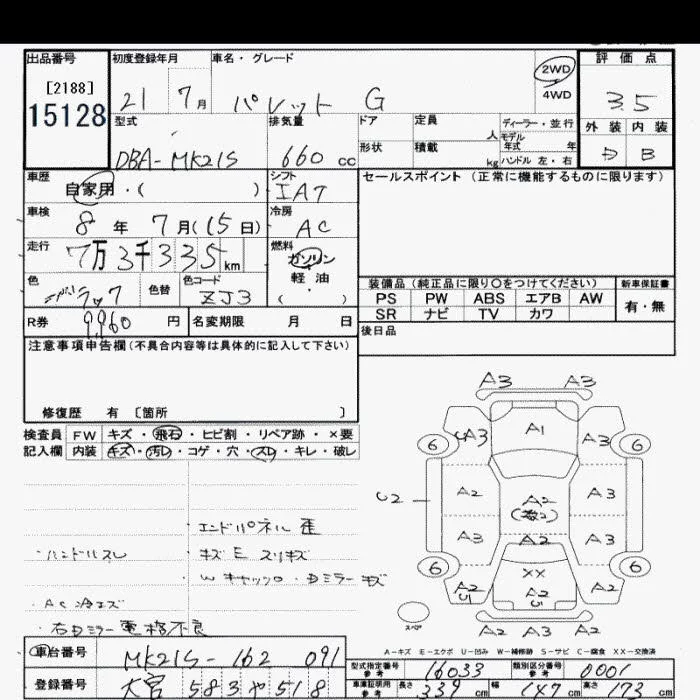 出品番号
[2188]
15128
初度登録年月
21 7月
車名・グレード
パレット G
2WD
4WD
評価点
3.5
外装 内装
D B
型式
DBA-MK21S
排気量
660 cc
ドア
形状
定員 人
積載 kg
ディーラー・並行
モデル年式 年
ハンドル 左・右
車歴
自家用・( )
シフト
IAT
セールスポイント (正常に機能するものに限ります)
車検
8年 7月(15日)
冷房
AC
走行
7万3千335km
燃料
ガソリン
軽油
( )
色
色替
色コード
ZJ3
装備品 (純正品に限り〇をつけてください)
新車保証書
PS PW ABS エアB AW
SR ナビ TV カワ
有・無
R券
9,960 円
名変期限 月 日
後日品
注意事項申告欄(不具合内容等は具体的に記入して下さい)
修復歴 有 〔箇所 〕
検査員 FW キズ・飛石・ヒビ割・リペア跡・×要
記入欄 内装 キズ・汚レ・コゲ・穴・スレ・キレ・破レ
エンドパネル 歪
・ハンドルスレ
キズ E スリキズ
・AC 冷エズ
・右Dミラー電格不良
A3 A3
A1
A3 A3
6 6
U2
A2 A2 A3
A3 A2 A3
6 6
XX
A2 U1
A2 U1
A2
スペア
A2 A3 A2
A-キズ E-エクボ U-凹み W-補修跡 S-サビ C-腐食 XX-交換済
車台番号
MK21S-162 091
登録番号
大宮 583 や 518
型式指定番号 参考
16033
類別区分番号 参考
0001
車庫証明用 参考
長さ 339 cm
幅 147 cm
高さ 173 cm